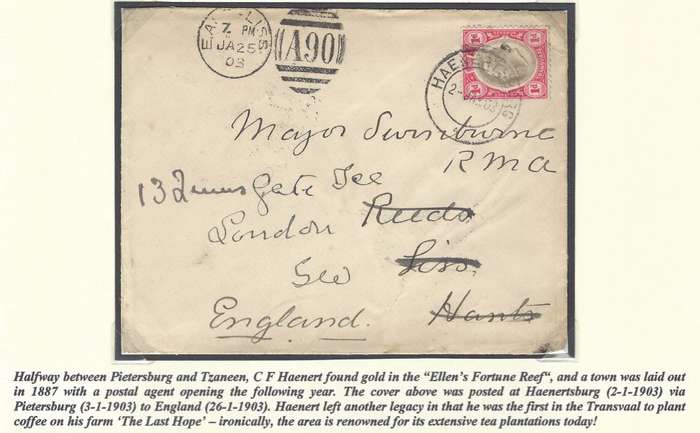 EAST LISS
7 PM
JA 25
03
A90
HAENERTSBURG
2-
03
Major Swinburne
R M A
13 Queens Gate Tce
Reeds
London
Liss
SW
Hants
England.
Halfway between Pietersburg and Tzaneen, C F Haenert found gold in the “Ellen’s Fortune Reef“, and a town was laid out
in 1887 with a postal agent opening the following year. The cover above was posted at Haenertsburg (2-1-1903) via
Pietersburg (3-1-1903) to England (26-1-1903). Haenert left another legacy in that he was the first in the Transvaal to plant
coffee on his farm ‘The Last Hope’ – ironically, the area is renowned for its extensive tea plantations today!